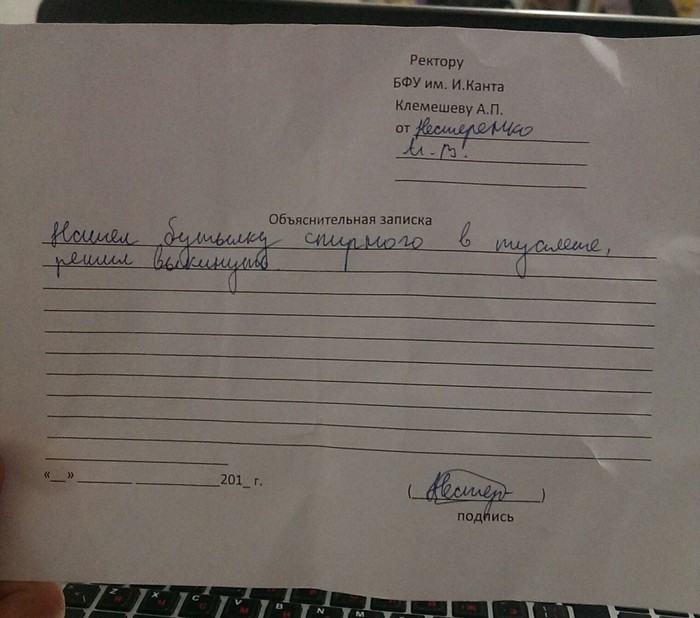 Ректору
БФУ им. И.Канта
Клемешеву А.П.
от Нестеренко
И.В.
Объяснительная записка
Нашел бутылку спирного в туалете,
решил выкинуть.
«__» ______ _________201_ г.
(Нестер)
подпись